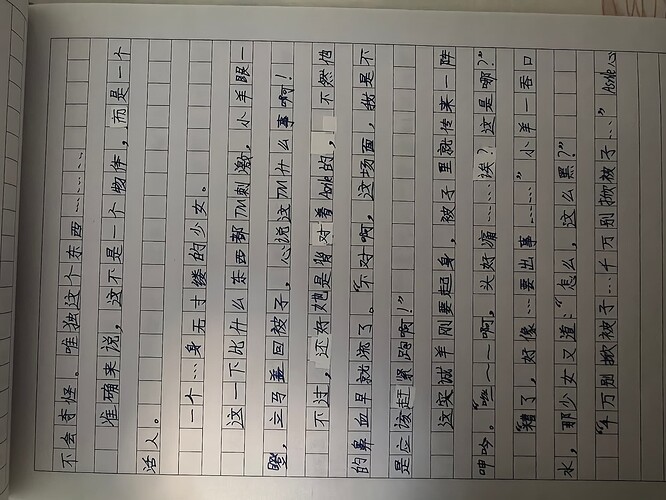 不会奇怪。唯独这个东西………
准确来说，这不是一个物体，而是一个
活人。
一个…身无寸缕的少女。
这一下比什么东西都TM刺激，小羊眼一
瞪，立马盖回被子，心说这TM什么事啊！
不过，还好她是背对着的，不然他
的鼻血早就流了。“不对啊，这场面，我是不
是应该赶紧跑啊！”
这实诚羊刚要起身，被子里就传来一阵
呻吟。“～～啊，头好痛……诶？这是哪？”
“糟了，好像…要出事……”小羊一吞口
水，那少女又道：“怎么，这么黑？”
“千万别掀被子…千万别掀被子…”心